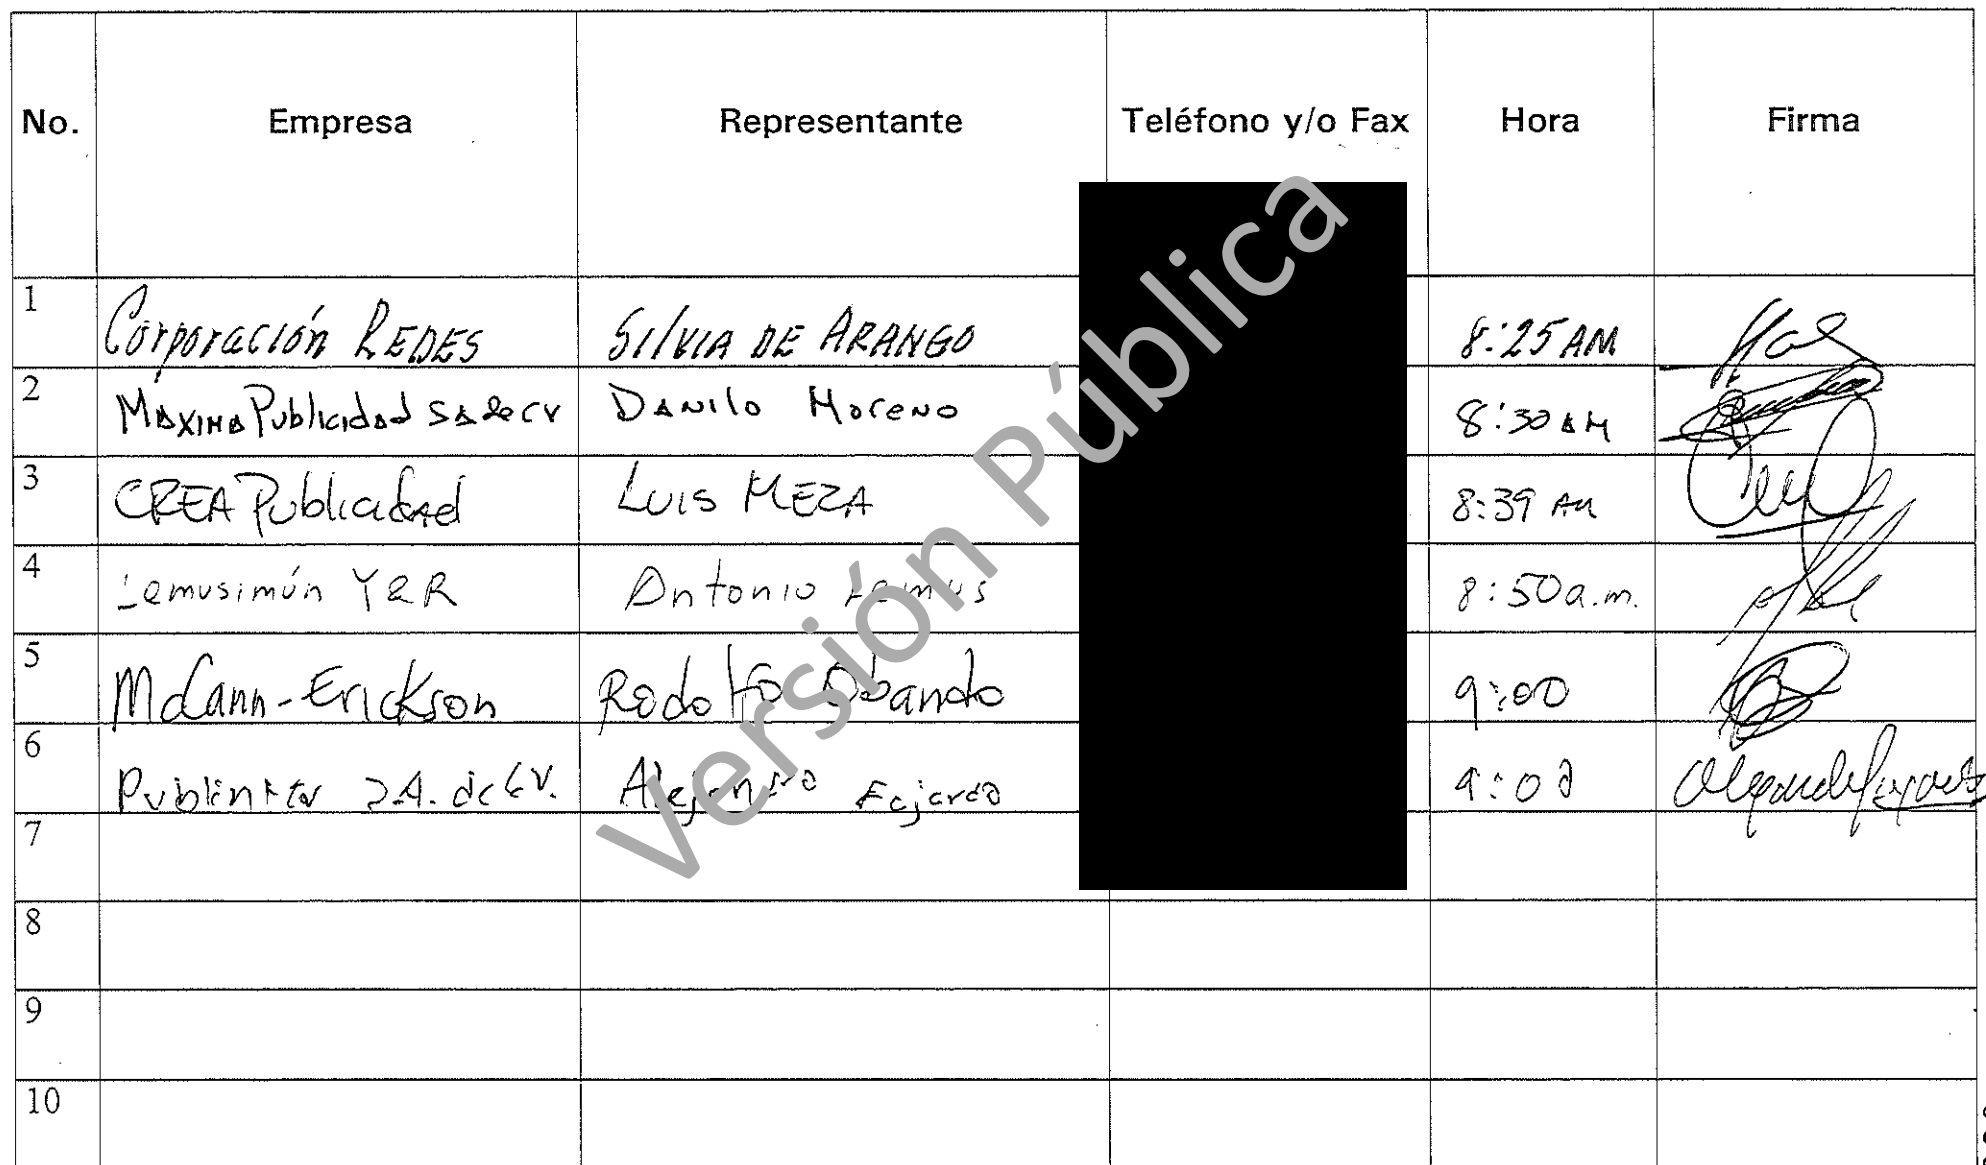 No. Empresa Representante Teléfono y/o Fax Hora Firma
1 Corporación REDES SIlVIA DE ARANGO 8:25 AM
2 MAXIMA Publicidad SA de CV DANIlO MORENO 8:30 AM
3 CREA Publicidad LUIS MEZA 8:39 AM
4 Lemusimún Y&R Antonio Lemus 8:50 a.m.
5 McCann-Erickson Rodolfo Obando 9:00
6 S.A. de C.V. Fajardo
7
8
9
10
Versión Pública